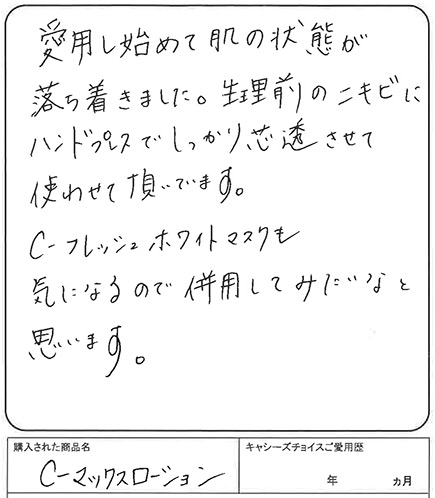 愛用し始めて肌の状態が
落ち着きました。生理前のニキビに
ハンドプレスでしっかり芯透させて
使わせて頂いています。
C-フレッシュホワイトマスクも
気になるので併用してみたいなと
思います。
購入された商品名
キャシーズチョイスご愛用歴
C-マックスローション
年 ヵ月